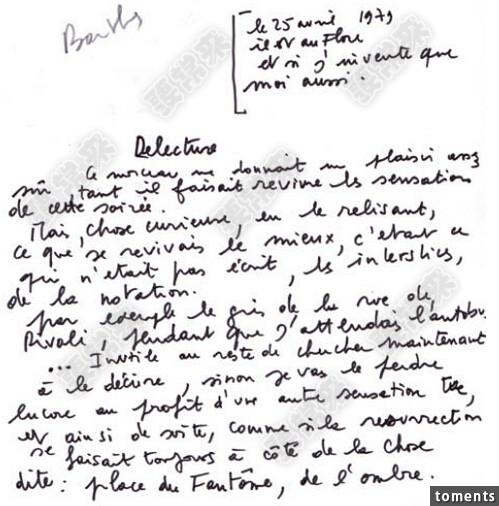 Barthes
le 25 avril 1979
il est au Flore
et si j'invente que
moi aussi.
Relecture
Ce morceau me donnait un plaisir assez
sûr, tant il faisait revivre les sensations
de cette soirée.
Mais, chose curieuse, en le relisant,
ce que je revivais le mieux, c'était ce
qui n'était pas écrit, les interstices,
de la notation.
par exemple le gris de la rue de
Rivoli, pendant que j'attendais l'autobus
... Inutile au reste de chercher maintenant
à le décrire, sinon je vais le perdre
encore au profit d'une autre sensation
et ainsi de suite, comme si la resurrection
se faisait toujours à côté de la chose
dite : place du Fantôme, de l'ombre.
耍常來
toments